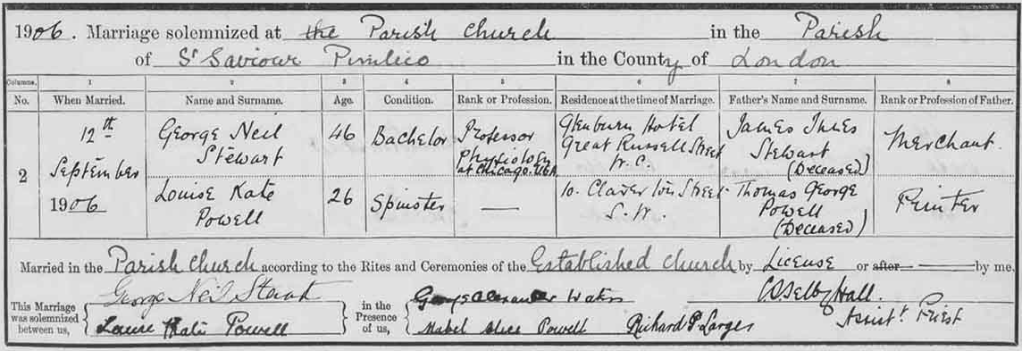 1906. Marriage solemnized at the Parish Church in the Parish
of St Saviour Pimlico in the County of London
Columns. 1 2 3 4 5 6 7 8
No. When Married. Name and Surname. Age. Condition. Rank or Profession. Residence at the time of Marriage. Father's Name and Surname. Rank or Profession of Father.
2
12th
September
1906
George Neil
Stewart
46
Bachelor
Professor
Physiology
at Chicago. USA
Glenburn Hotel
Great Russell Street
W.C.
James Innes
Stewart
(Deceased)
Merchant.
Louise Kate
Powell
26
Spinster
—
10. Claverton Street
S.W.
Thomas George
Powell
(Deceased)
Printer
Married in the Parish Church according to the Rites and Ceremonies of the Established Church by License or after — by me.
This Marriage
was solemnized
between us,
George Neil Stewart
Louise Kate Powell
in the
Presence
of us,
George Alexander
Mabel Alice Powell Richard P
Hall.
Assist. Priest